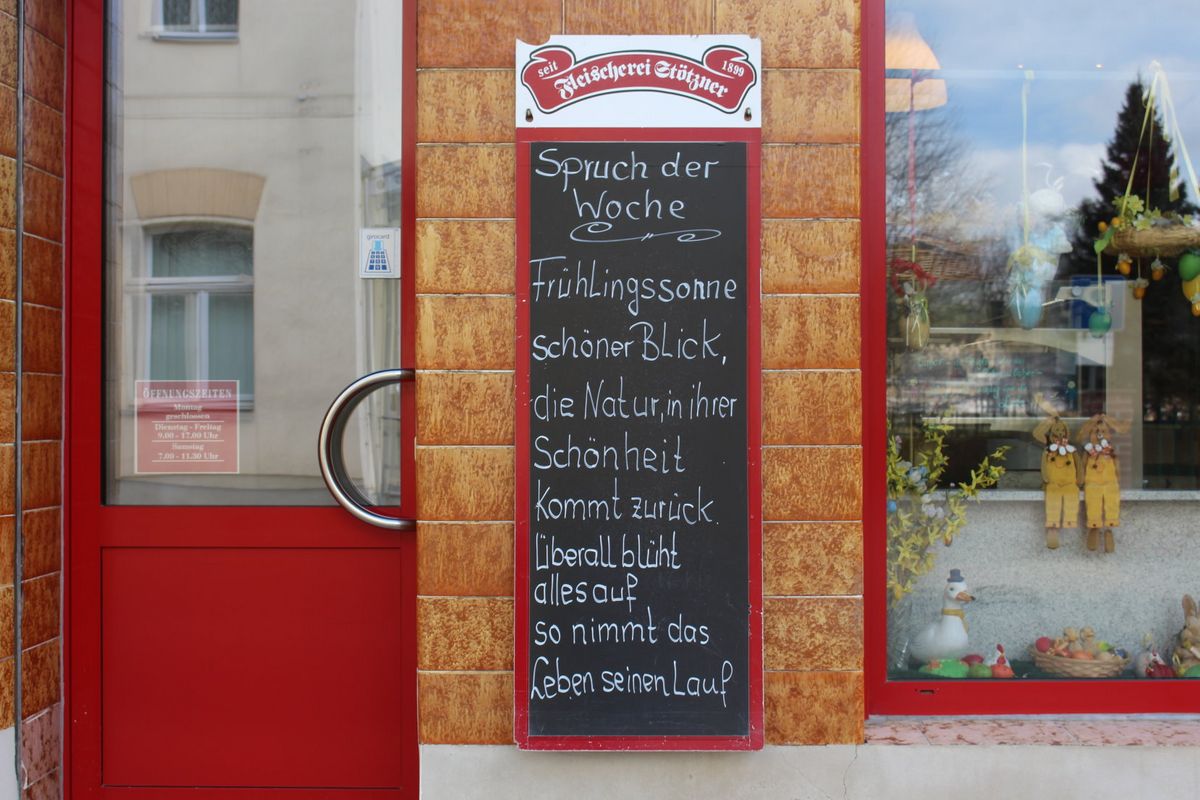 seit Fleischerei Stötzner 1899
Spruch der
Woche
Frühlingssonne
schöner Blick,
die Natur, in ihrer
Schönheit
kommt zurück.
Überall blüht
alles auf
so nimmt das
Leben seinen Lauf
girocard
ÖFFNUNGSZEITEN
Montag
geschlossen
Dienstag - Freitag
9.00 - 17.00 Uhr
Samstag
7.00 - 11.30 Uhr